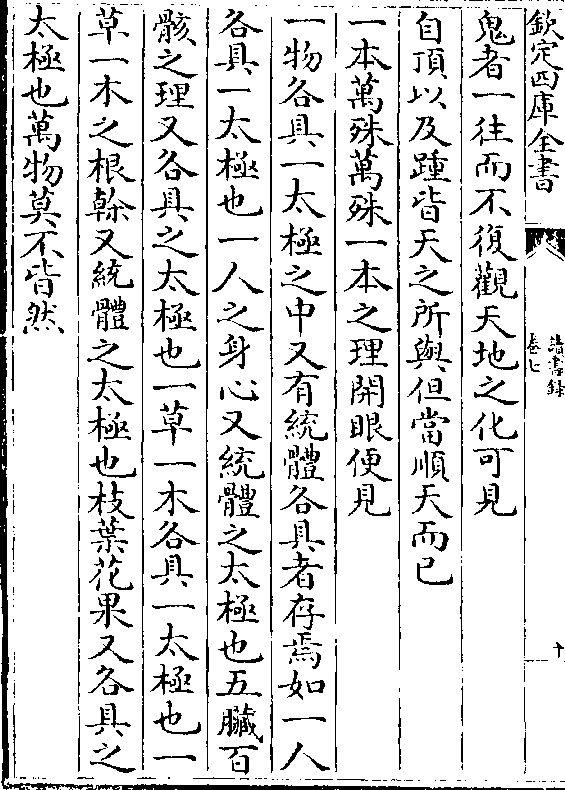 欽定四庫全書
讀書録
卷七
十
鬼者一往而不復觀天地之化可見
自頂以及踵皆天之所與但當順天而已
一本萬殊萬殊一本之理開眼便見
一物各具一太極之中又有統體各具者存焉如一人
各具一太極也一人之身心又統體之太極也五臟百
骸之理又各具之太極也一草一木各具一太極也一
草一木之根榦又統體之太極也枝葉花果又各具之
太極也萬物莫不皆然